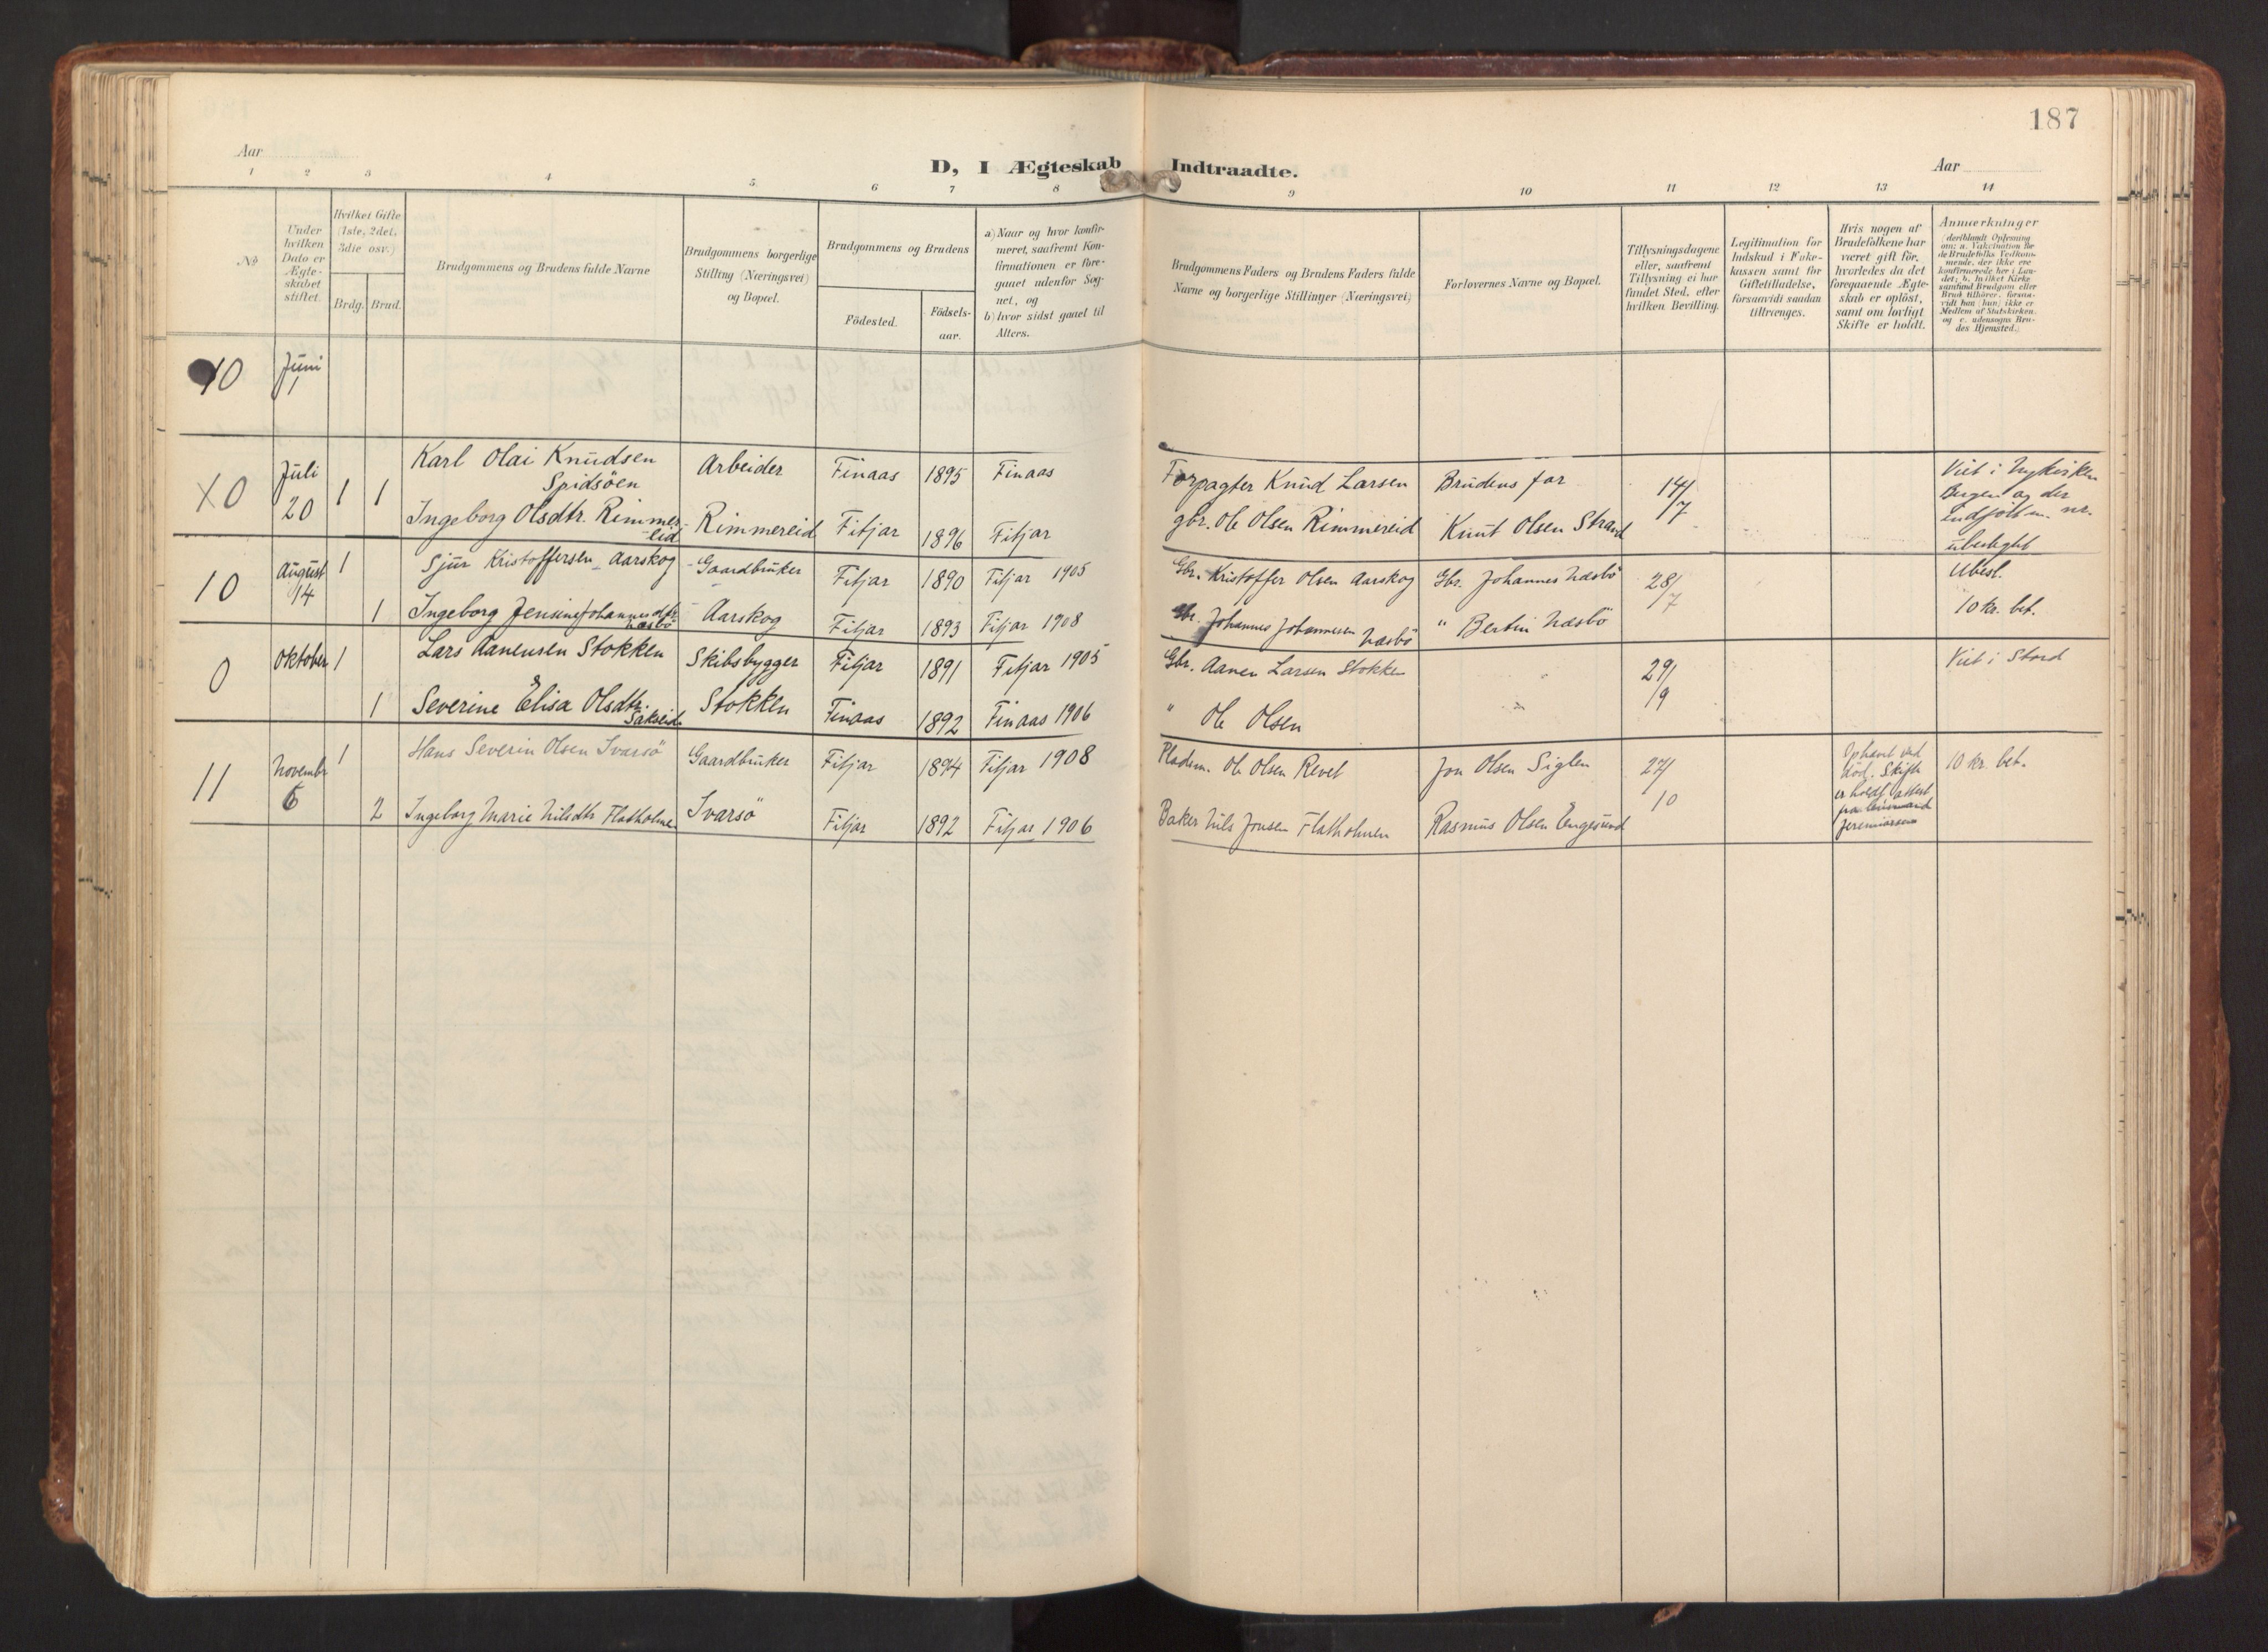 187
Aar
D, I Ægteskab Indtraadte.
Aar
1 2 3 4 5 6 7 8 9 10 11 12 13 14
No
Under hvilken Dato er Ægteskabet stiftet.
Hvilket Gifte (1ste, 2det, 3die osv.)
Brdg. Brud.
Brudgommens og Brudens fulde Navne
Brudgommens borgerlige Stilling (Næringsvei) og Bopæl.
Brudgommens og Brudens
Födested.
Födselsaar.
a) Naar og hvor konfirmeret, saafremt Konfirmationen er foregaaet udenfor Sognet, og
b) hvor sidst gaaet til Alters.
Brudgommens Faders og Brudens Faders fulde Navne og borgerlige Stillinger (Næringsvei)
Forlovernes Navne og Bopæl.
Tillysningsdagene eller, saafremt Tillysning ei har fundet Sted, efter hvilken Bevilling.
Legitimation for Indskud i Enkekassen samt for Giftetilladelse, forsaavidt saadan tiltrænges.
Hvis nogen af Brudefolkene har været gift för, hvorledes da det foregaaende Ægteskab er oplöst, samt om lovligt Skifte er holdt.
Anmærkninger
10 Juni
10 Juli 20 1 1 Karl Olai Knudsen Spidsöen Arbeider Finaas 1895 Finaas Forpagter Knud Larsen Brudens far 14/7 Viet i Nykirken Bergen og der
Ingeborg Olsdtr. Rimmereid Rimmereid Fitjar 1896 Fitjar gbr. Ole Olsen Rimmereid Knut Olsen Strand
10 August 14 1 Sjur Kristoffersen Aarskog Gaardbruker Fitjar 1890 Fitjar 1905 Gbr. Kristoffer Olsen Aarskog Gbr. Johannes Næsbö 28/7 Ubesl.
1 Ingeborg Jensine Johannesdtr. Næsbö Aarskog Fitjar 1893 Fitjar 1908 Gbr. Johannes Johannesen Næsbö " Bertin Næsbö 10 kr. bet.
0 Oktober 1 Lars Aanensen Stokken Skibsbygger Fitjar 1891 Fitjar 1905 Gbr. Aanen Larsen Stokken " 29/9 Viet i Stord
1 Severine Elisa Olsdtr. Sakseid Stokken Finaas 1892 Finaas 1906 " Ole Olsen "
11 Novembr 6 1 Hans Severin Olsen Ivarsö Gaardbruker Fitjar 1894 Fitjar 1908 Pladsm. Ole Olsen Revel Jon Olsen Siglen 27/10 Ophævet ved död. Skifte er holdt, attest fra lensmand 10 kr. bet.
2 Ingeborg Marie Nilsdtr Flatholmen Ivarsö Fitjar 1892 Fitjar 1906 Baker Nils Jonsen Flatholmen Rasmus Olsen Engesund